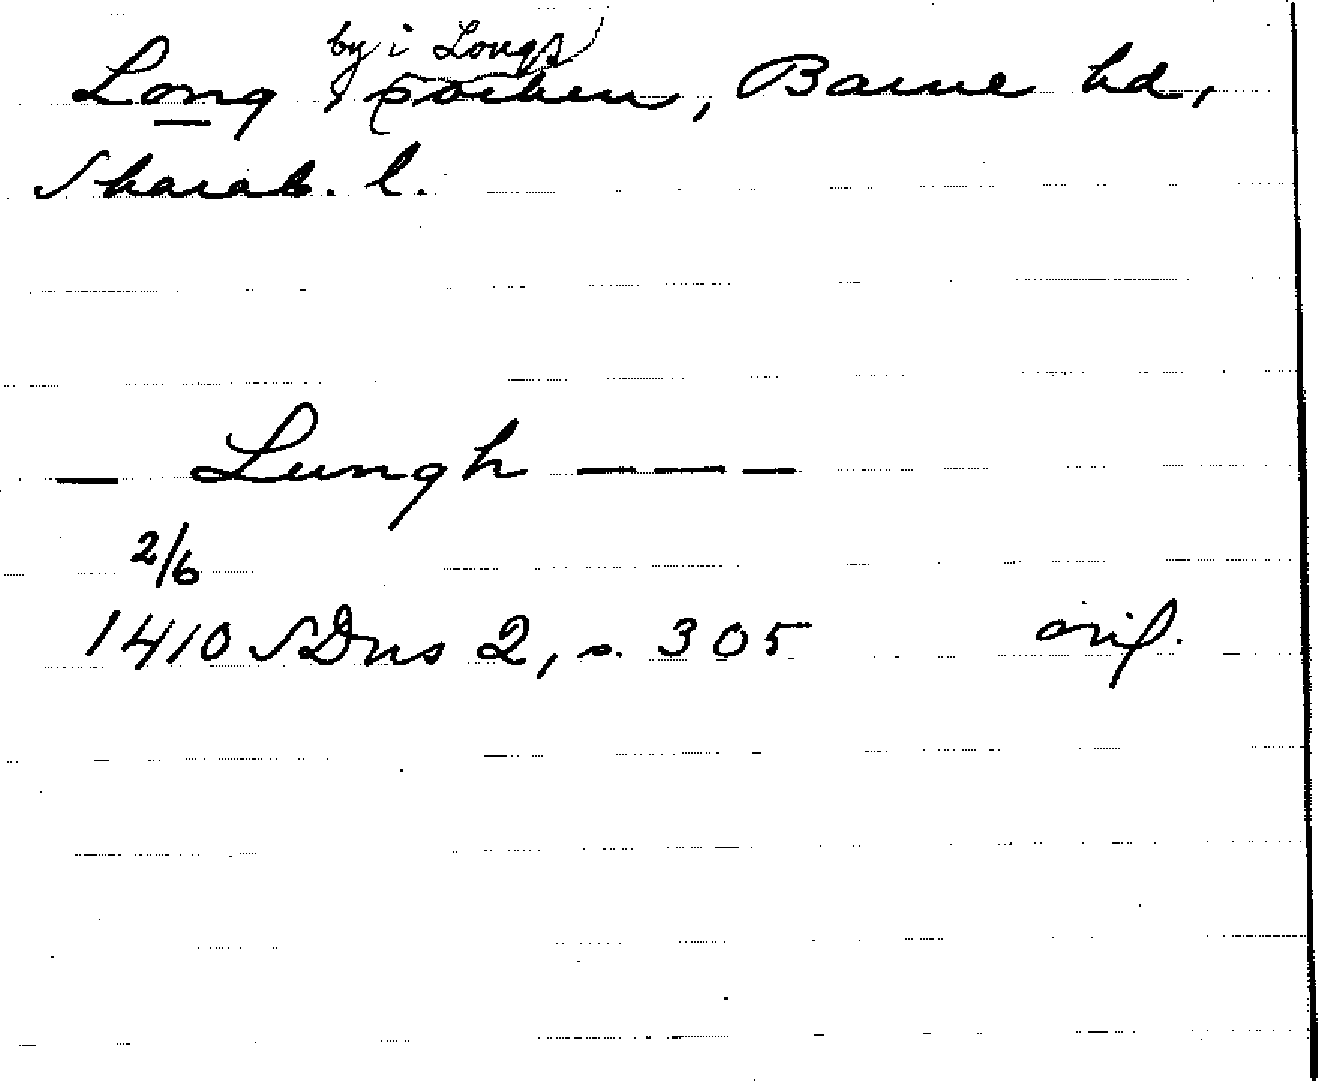 by i Longs)
Long (socken, Barne hd,
Skarab. l.
— Lungh — — —
2/6
1410 SDns 2, s. 305 orig.